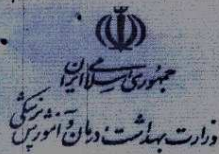 جمهوری اسلامی ایران
وزارت بهداشت درمان و آموزش پزشکی